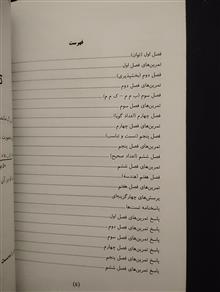 فهرست
فصل اول (توان)
تمرین‌های فصل اول
فصل دوم (بخشپذیری)
تمرین‌های فصل دوم
فصل سوم (ب م م - ک م م)
تمرین‌های فصل سوم
فصل چهارم (اعداد گویا)
تمرین‌های فصل چهارم
فصل پنجم (نسبت و تناسب)
تمرین‌های فصل پنجم
فصل ششم (اعداد صحیح)
تمرین‌های فصل ششم
فصل هفتم (هندسه)
تمرین‌های فصل هفتم
پرسش‌های چهارگزینه‌ای
پاسخنامه تست‌ها
پاسخ تمرین‌های فصل اول
پاسخ تمرین‌های فصل دوم
پاسخ تمرین‌های فصل سوم
پاسخ تمرین‌های فصل چهارم
پاسخ تمرین‌های فصل پنجم
پاسخ تمرین‌های فصل ششم